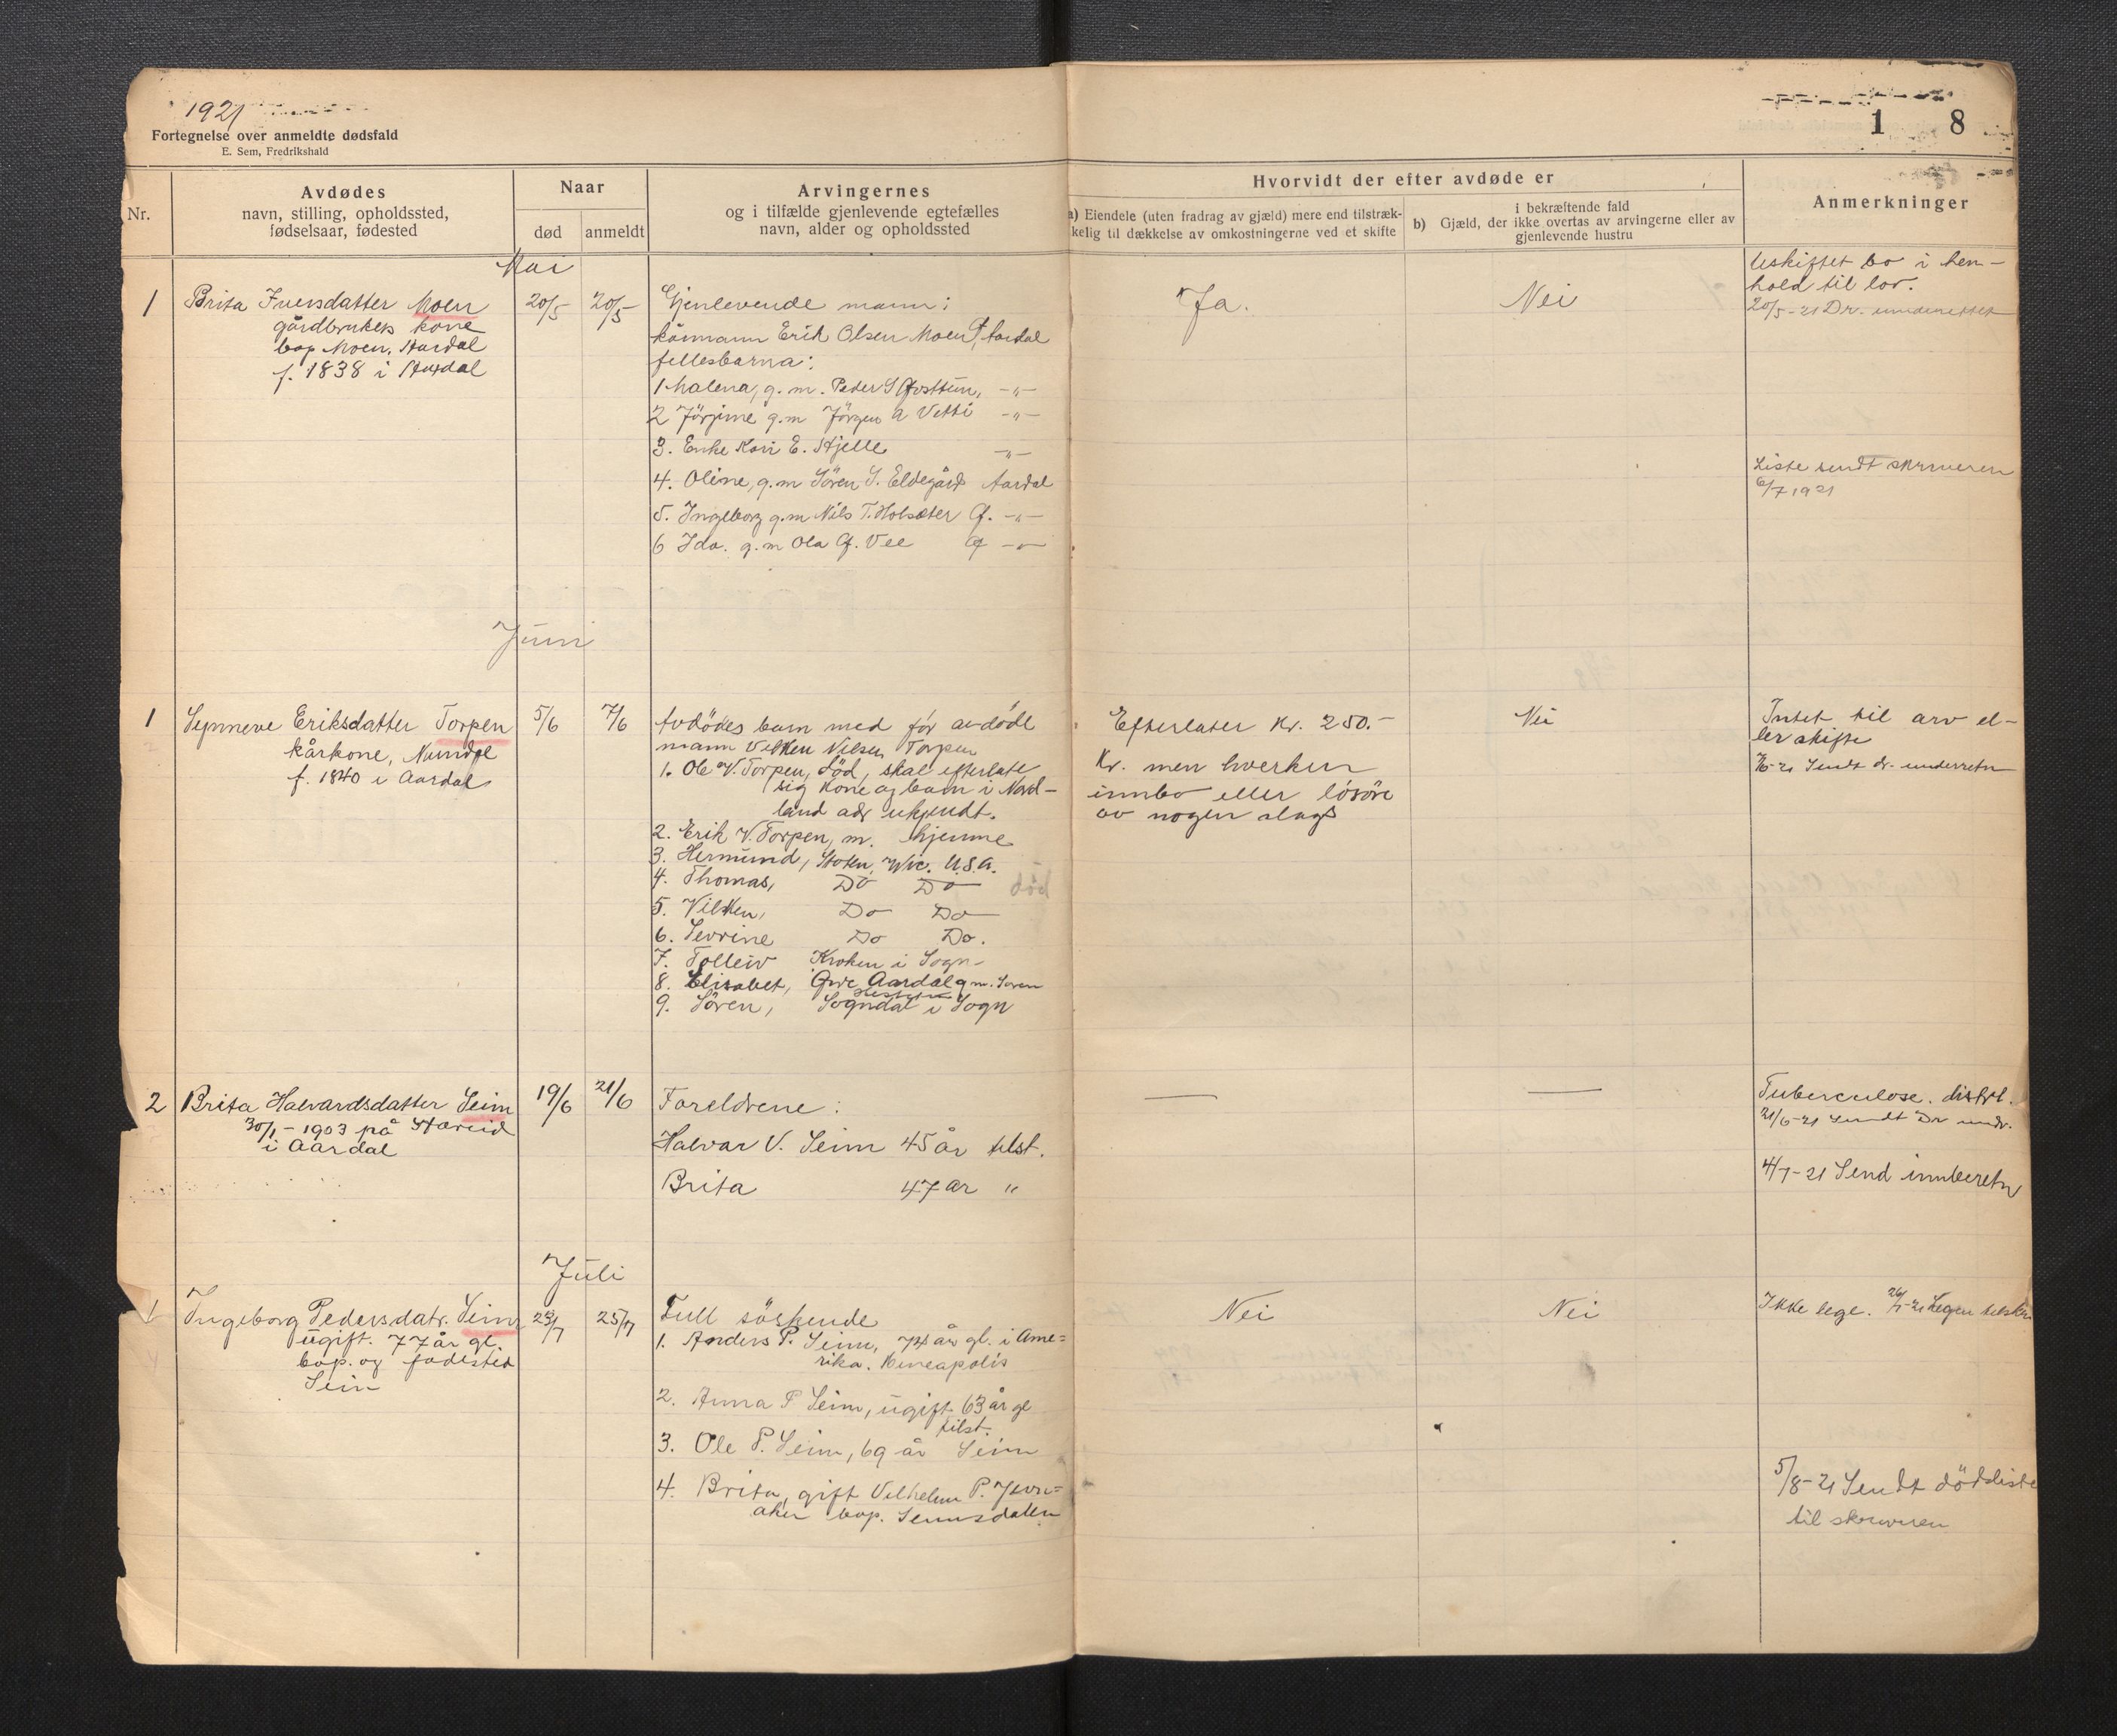 1921
Fortegnelse over anmeldte dødsfald
E. Sem, Fredrikshald
1 8
Nr.
Avdødes
navn, stilling, opholdssted,
fødselsaar, fødested
Naar
død
anmeldt
Arvingernes
og i tilfælde gjenlevende egtefælles
navn, alder og opholdssted
Hvorvidt der efter avdøde er
a) Eiendele (uten fradrag av gjæld) mere end tilstræk-
kelig til dækkelse av omkostningerne ved et skifte
i bekræftende fald
b) Gjæld, der ikke overtas av arvingerne eller av
gjenlevende hustru
Anmerkninger
Mai
1
Brita Iversdatter Moen
gårdbrukers kone
bop Moen, Aardal
f. 1838 i Aardal
20/5
20/5
Gjenlevende mann:
kårmann Erik Olsen Moen, Aardal
fellesbarna:
1 Malena, g. m. Peder S -"-
2 Jörgine g.m Jörgen A Vetti -"-
3. Enke Kari E. Hjelle -"-
4. Oline, g.m Sören S. Eldegård Aardal
5. Ingeborg g.m Nils T. Holsæter Ø. -"-
6 Ida. g.m Ola Ø. Vee Ø -"-
Ja.
Nei
Uskiftet bo i hen-
hold til lov.
20/5-21 Dr. underrettet
Liste sendt skriveren
6/7 1921
Juni
1
Synneve Eriksdatter Torpen
kårkone, Nundal
f. 1840 i Aardal
5/6
7/6
Avdödes barn med för avdöde
mann Vilken Nilsen Torpen
1. Ole V. Torpen, död, skal efterlate
sig kone og barn i Nord-
land adr ukjendt.
2. Erik V. Torpen, m. hjemme
3. Hermund, Wic. U.S.A.
4. Thomas, Do Do död
5. Vilken, Do Do
6. Sevrine Do Do.
7. Tolleiv Kroken i Sogn
8. Elisabet, Övre Aardal g m. Soren
9. Sören, Sogndal i Sogn
Efterlater Kr. 250.-
Kr. men hverken
innbo eller lösöre
av nogen slags
Nei
Intet til arv el-
ler skifte
7/6-21 Sendt dr. underretn
2
Brita Halvardsdatter Seim
30/1-1903 på
i Aardal
19/6
21/6
Foreldrene:
Halvar V. Seim 45 år tilst.
Brita 47 år "
—
—
Tuberculose. distrl.
21/6-21 Sendt Dr undr.
4/7-21 Send innberetn
Juli
1
Ingeborg Pedersdatr. Seim
ugift. 77 år gl.
bop. og fødested
Seim
23/7
25/7
Full söskende
1. Anders P. Seim, 74 år gl. i Ame=
rika. Mineapolis
2. Anna P Seim, ugift 63 år gl
tilst.
3. Ole P. Seim, 69 år Seim
4. Brita, gift Vilhelm P.
aker bop.
Nei
Nei
Ikke lege. 26/7-21 Legen tilskr.
5/8-21 Sendt dödsliste
til skriveren